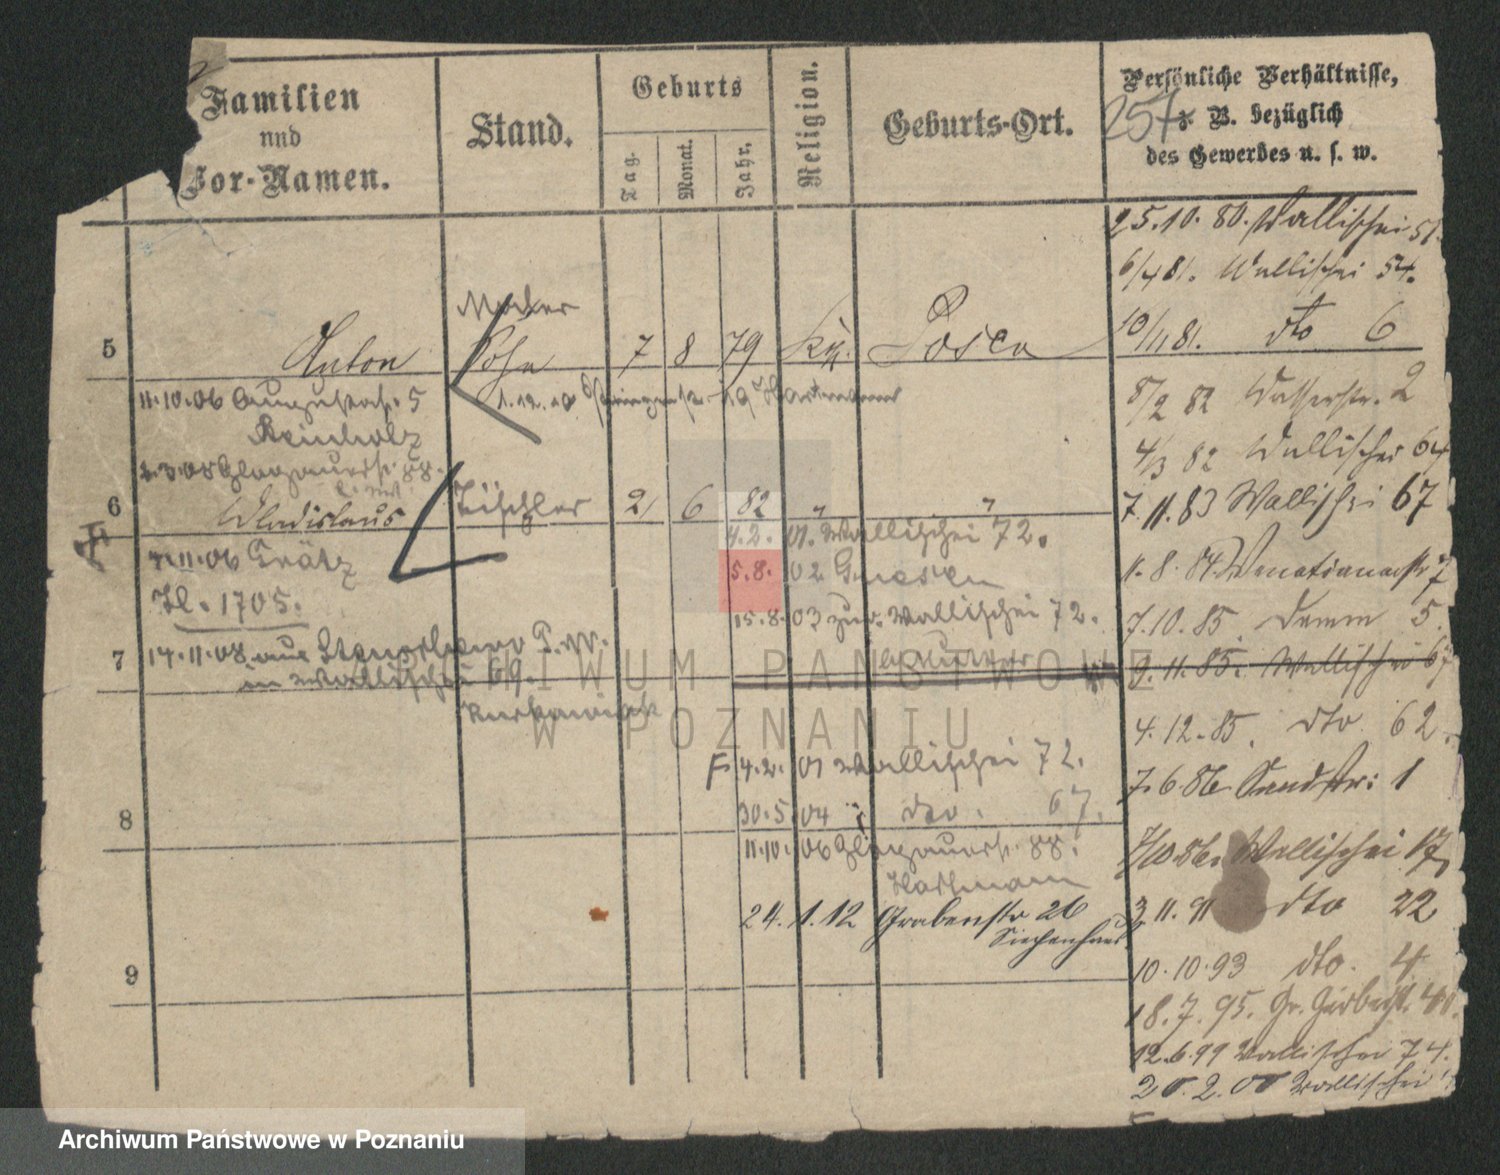 Familien
und
Vor-Namen.
Stand.
Geburts
Tag.
Monat.
Jahr.
Religion.
Geburts-Ort.
Persönliche Verhältnisse,
z. B. bezüglich
des Gewerbes u. s. w.
257
25.10.80. Wallischei 51.
6/4 81. Wallischei 54.
10/11 81. dto 6
5 Anton Sohn 7 8 79 Posen
Maler
8/2 82 Wasserstr. 2
11.10.06 Augustastr. 5
Reinholz
4/3 82 Wallischei 64
88.
6 Wladislaus Tischler 21 6 82 " "
7.11.83 Wallischei 67
4.2.01. Wallischei 72.
7.11.06 Grätz
5.8.02 Gnesen
11.8.84 Venetianerstr 7
Hl. 1705.
15.8.03 zur. Wallischei 72.
7.10.85. Damm 5
7 14.11.08 aus
in Wallischei 69.
9.11.85. Wallischei 67
4.12.85. dto 62.
F 4.2.01 Wallischei 72.
7.6.86 Sandstr: 1
30.5.04 dto. 67.
8
11.10.06 Glogauerstr. 88.
Hartmann
7/10 86. Wallischei 17,
24.1.12 Grabenstr 26
Siechenhaus
3.11.91 dto 22
9
10.10.93 dto. 4
18.7.95. Gr. Gerberstr. 40.
12.6.99 Wallischei 74.
20.2.00 Wallischei
ARCHIWUM PAŃSTWOWE
W POZNANIU
Archiwum Państwowe w Poznaniu